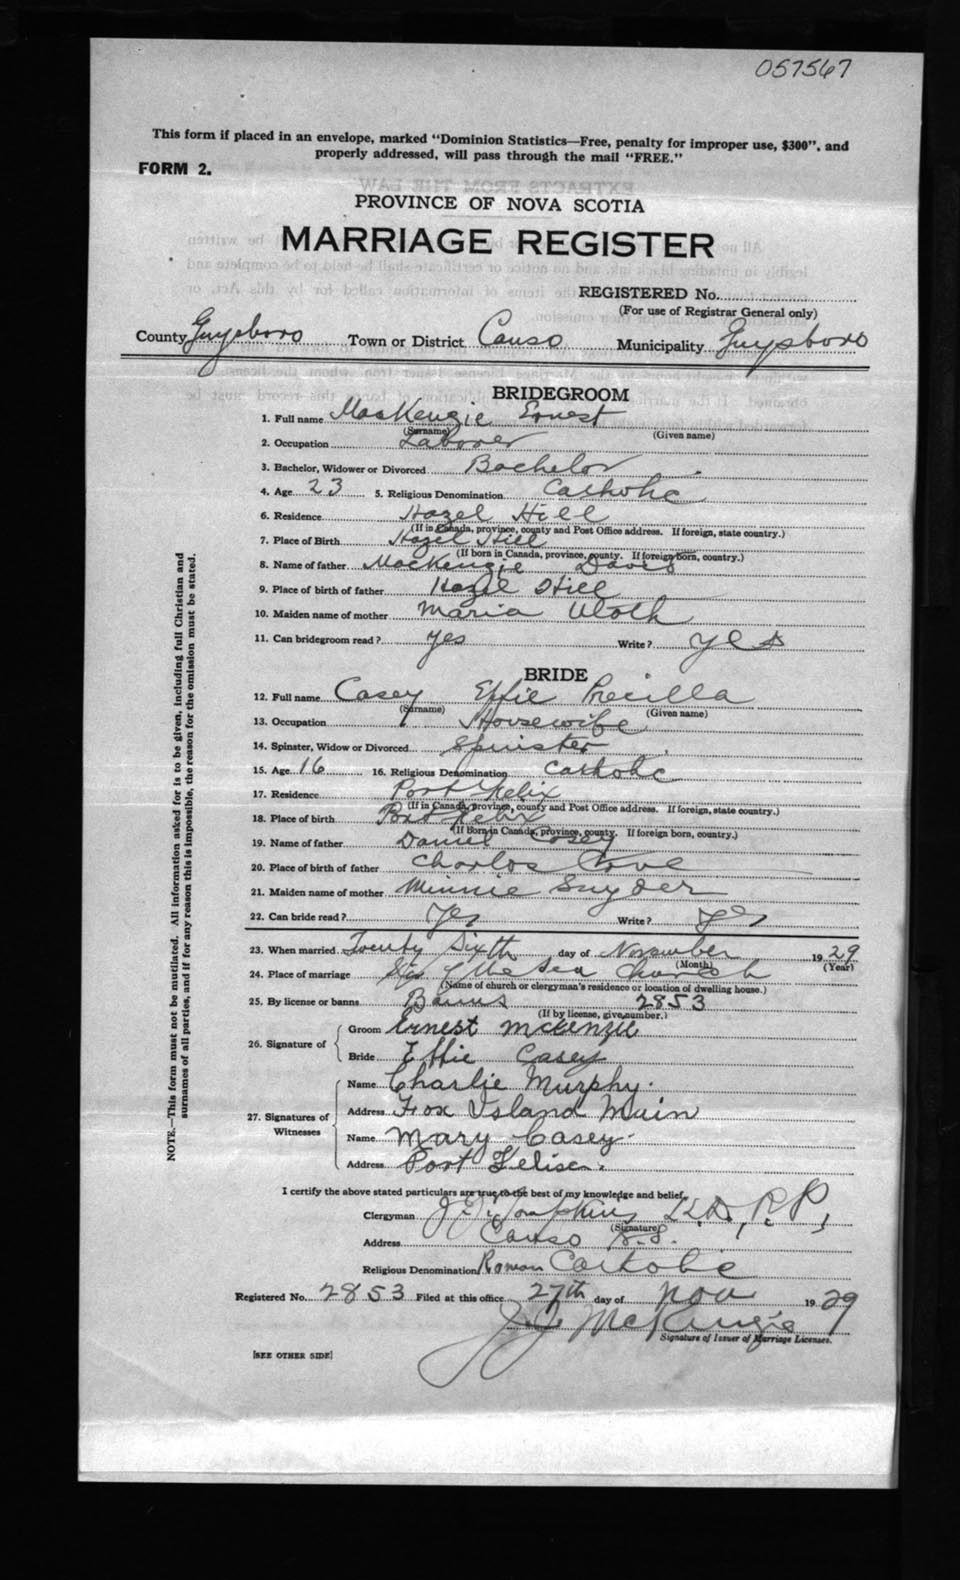 057567
This form if placed in an envelope, marked "Dominion Statistics—Free, penalty for improper use, $300", and
properly addressed, will pass through the mail "FREE."
FORM 2.
PROVINCE OF NOVA SCOTIA
MARRIAGE REGISTER
REGISTERED No.
(For use of Registrar General only)
County Guysboro Town or District Canso Municipality Guysboro
BRIDEGROOM
1. Full name MacKenzie Ernest
(Surname) (Given name)
2. Occupation Laborer
3. Bachelor, Widower or Divorced Bachelor
4. Age 23 5. Religious Denomination Catholic
6. Residence Hazel Hill
(If in Canada, province, county and Post Office address. If foreign, state country.)
7. Place of Birth Hazel Hill
(If born in Canada, province, county. If foreign born, country.)
8. Name of father MacKenzie David
9. Place of birth of father Hazel Hill
10. Maiden name of mother Maria Uloth
11. Can bridegroom read? yes Write? yes
BRIDE
12. Full name Casey Effie Precilla
(Surname) (Given name)
13. Occupation Housewife
14. Spinster, Widow or Divorced Spinster
15. Age 16 16. Religious Denomination Catholic
17. Residence Port Felix
(If in Canada, province, county and Post Office address. If foreign, state country.)
18. Place of birth Port Felix
(If Born in Canada, province, county. If foreign born, country.)
19. Name of father Daniel Casey
20. Place of birth of father Charlos Cove
21. Maiden name of mother Minnie Snyder
22. Can bride read? Yes Write? yes
23. When married Twenty Sixth day of November 1929
(Month) (Year)
24. Place of marriage Star of the Sea Church
(Name of church or clergyman's residence or location of dwelling house.)
25. By license or banns Banns 2853
(If by license, give number.)
26. Signature of
Groom Ernest McKenzie
Bride Effie Casey
27. Signatures of Witnesses
Name Charlie Murphy.
Address Fox Island Main
Name Mary Casey.
Address Port Felise.
I certify the above stated particulars are true to the best of my knowledge and belief,
Clergyman J. J. Tompkins P.P.,
(Signature)
Address Canso N.S.
Religious Denomination Roman Catholic
Registered No. 2853 Filed at this office 27th day of Nov 1929
J. J. McKenzie
Signature of Issuer of Marriage Licenses.
[SEE OTHER SIDE]
NOTE.—This form must not be mutilated. All information asked for is to be given, including full Christian and
surnames of all parties, and if for any reason this is impossible, the reason for the omission must be stated.